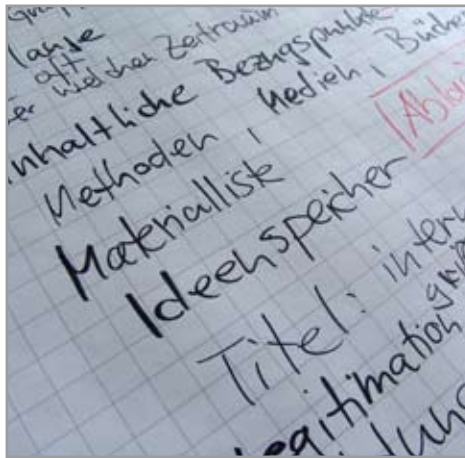 lange
oft
welcher Zeitraum
inhaltliche Bezugspunkte
Methoden, Medien, Bücher
Materialliste
Ideenspeicher
Titel: intern
Legitimation